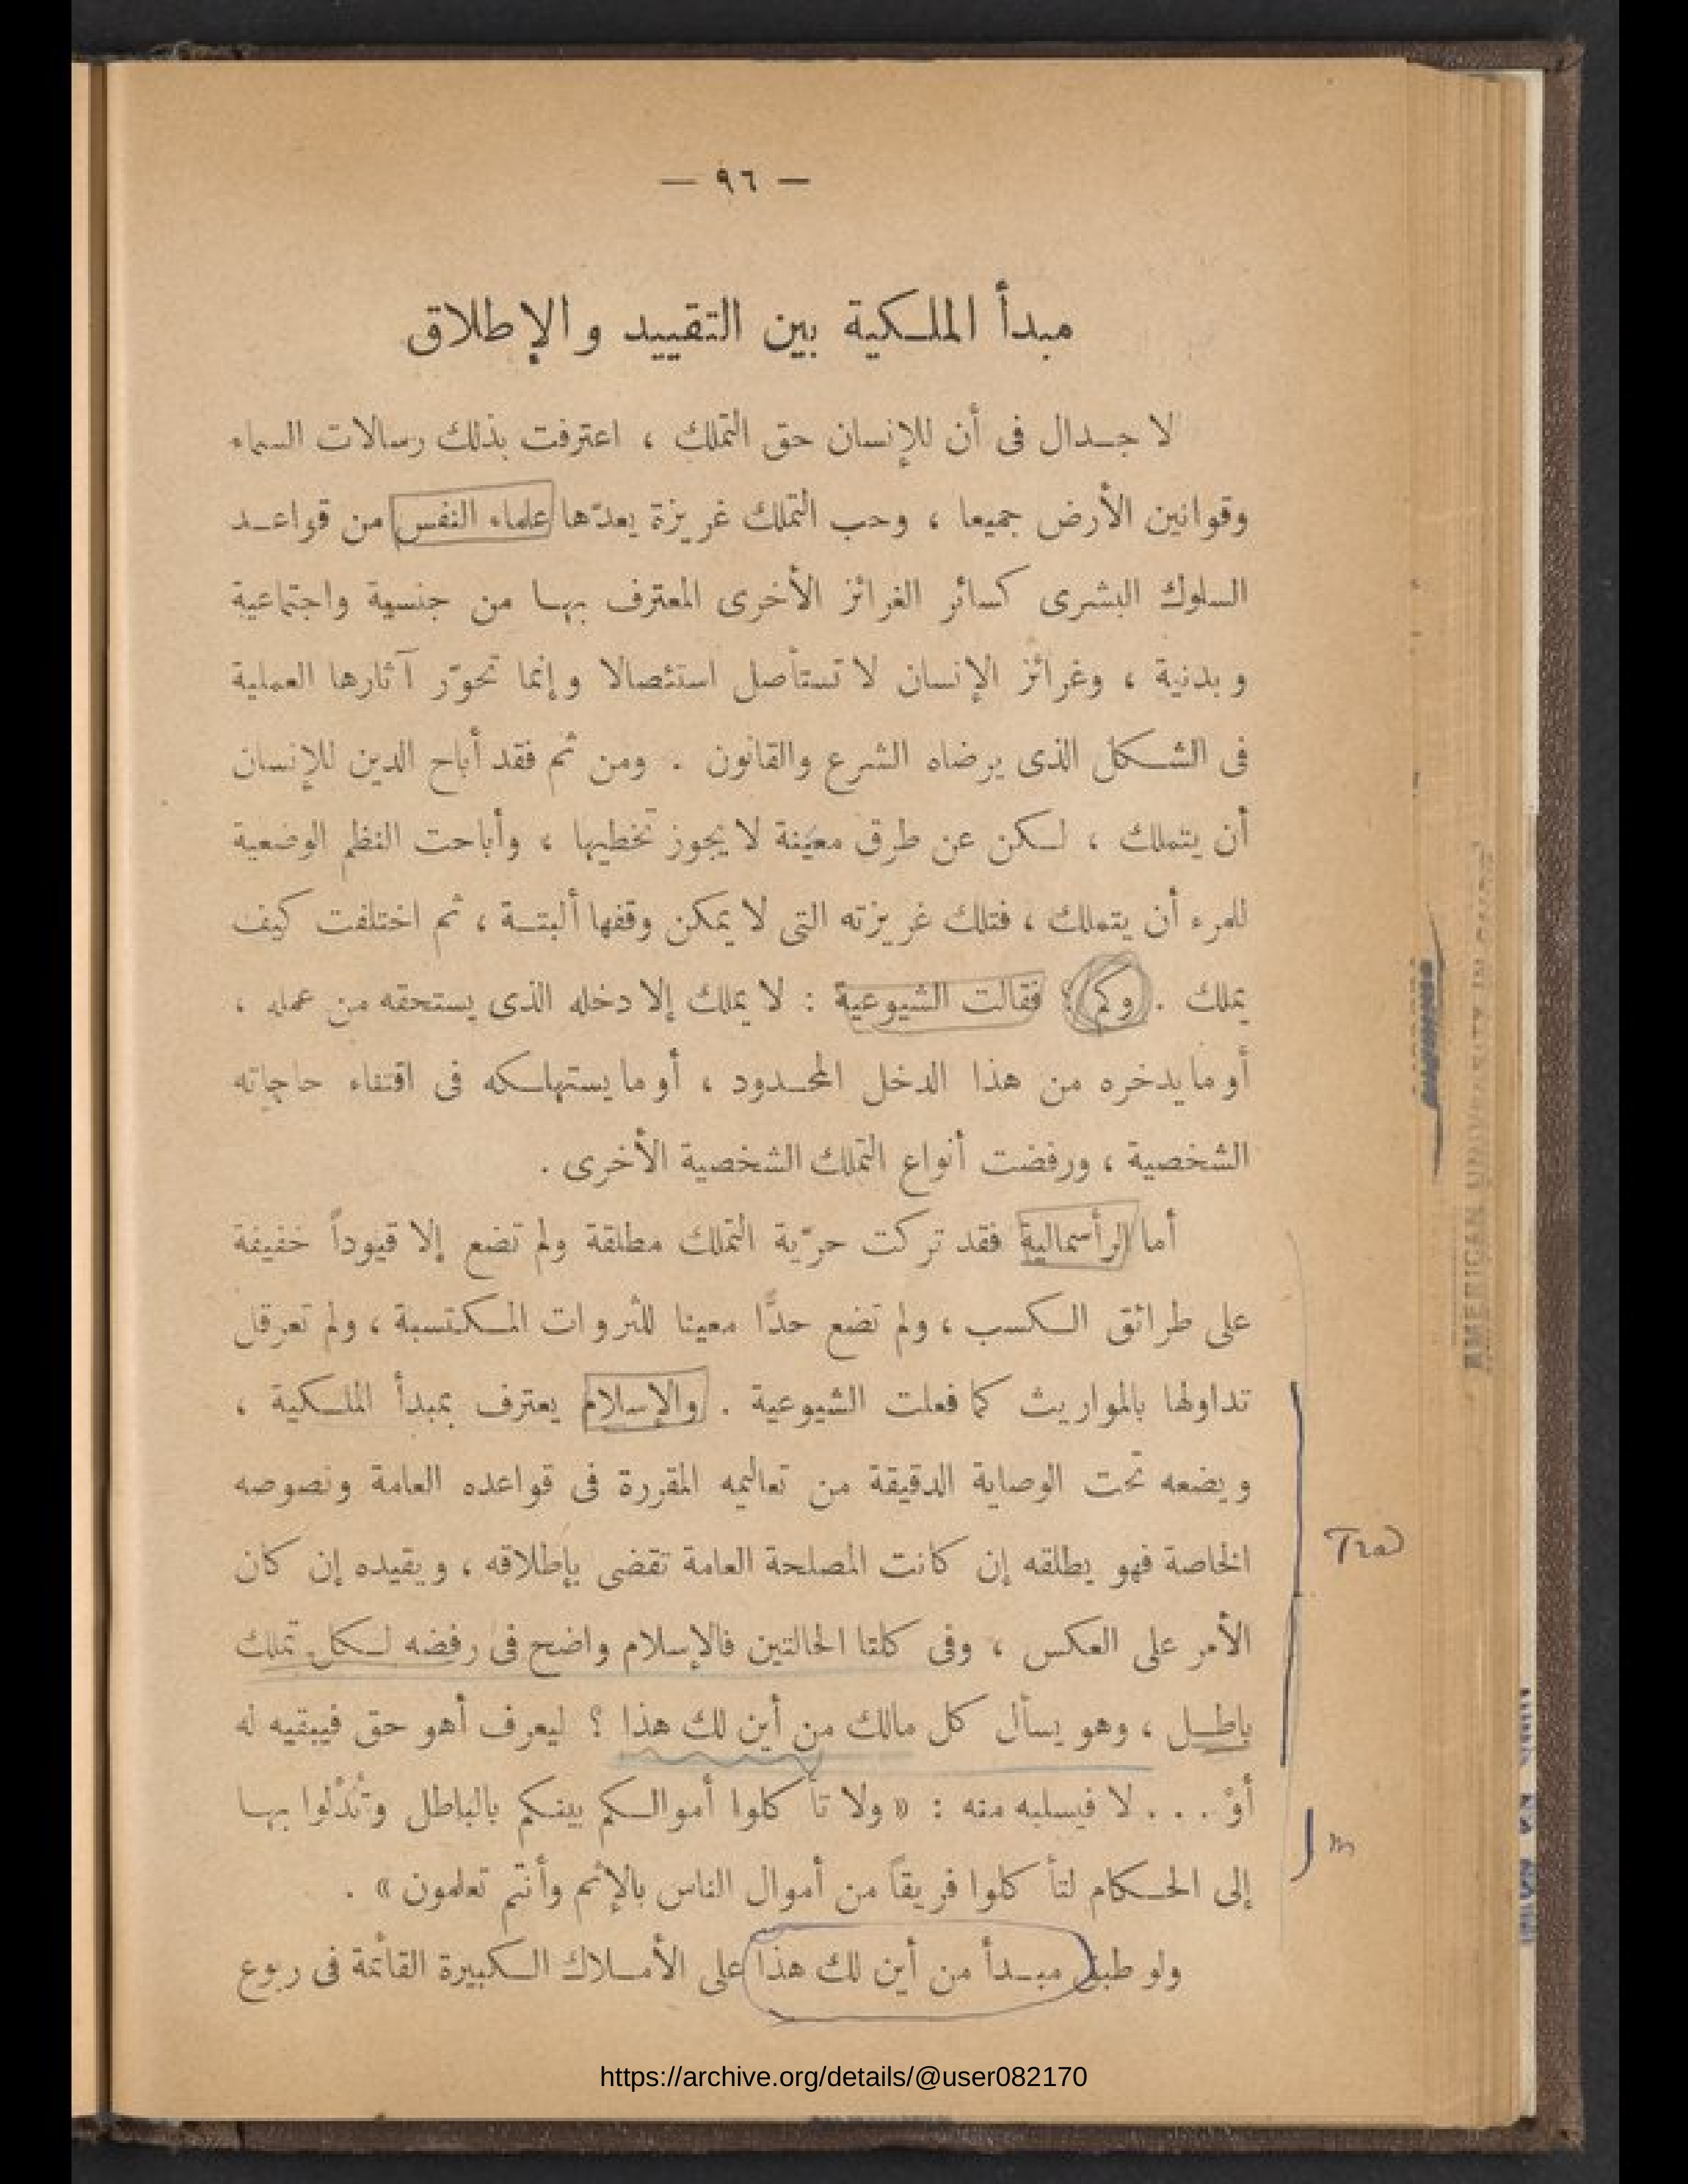 — ٩٦ —
مبدأ الملكية بين التقييد والإطلاق
لا جدال فى أن للإنسان حق التملك ، اعترفت بذلك رسالات السماء
وقوانين الأرض جميعا ، وحب التملك غريزة يعدّها علماء النفس من قواعد
السلوك البشرى كسائر الغرائز الأخرى المعترف بها من جنسية واجتماعية
وبدنية ، وغرائز الإنسان لا تستأصل استئصالا وإنما تحوّر آثارها العملية
فى الشكل الذى يرضاه الشرع والقانون . ومن ثم فقد أباح الدين للإنسان
أن يتملك ، لكن عن طرق معيّنة لا يجوز تخطيها ، وأباحت النظم الوضعية
للمرء أن يتملك ، فتلك غريزته التى لا يمكن وقفها ألبتة ، ثم اختلفت كيف
يملك . وكم ؟ فقالت الشيوعية : لا يملك إلا دخله الذى يستحقه من عمله ،
أو ما يدخره من هذا الدخل المحدود ، أو ما يستهلكه فى اقتناء حاجاته
الشخصية ، ورفضت أنواع التملك الشخصية الأخرى .
أما الرأسمالية فقد تركت حرّية التملك مطلقة ولم تضع إلا قيوداً خفيفة
على طرائق الكسب ، ولم تضع حدًّا معينا للثروات المكتسبة ، ولم تعرقل
تداولها بالمواريث كما فعلت الشيوعية . والإسلام يعترف بمبدأ الملكية ،
ويضعه تحت الوصاية الدقيقة من تعاليمه المقررة فى قواعده العامة ونصوصه
الخاصة فهو يطلقه إن كانت المصلحة العامة تقضى بإطلاقه ، ويقيده إن كان
الأمر على العكس ، وفى كلتا الحالتين فالإسلام واضح فى رفضه لكل تملك
باطل ، وهو يسأل كل مالك من أين لك هذا ؟ ليعرف أهو حق فيبقيه له
أوْ . . . لا فيسلبه منه : « ولا تأكلوا أموالكم بينكم بالباطل وتُدْلوا بها
إلى الحكام لتأكلوا فريقاً من أموال الناس بالإثم وأنتم تعلمون » .
ولو طبق مبدأ من أين لك هذا على الأملاك الكبيرة القائمة فى ربوع
Trad
m
AMERICAN UNIVERSITY IN
https://archive.org/details/@user082170